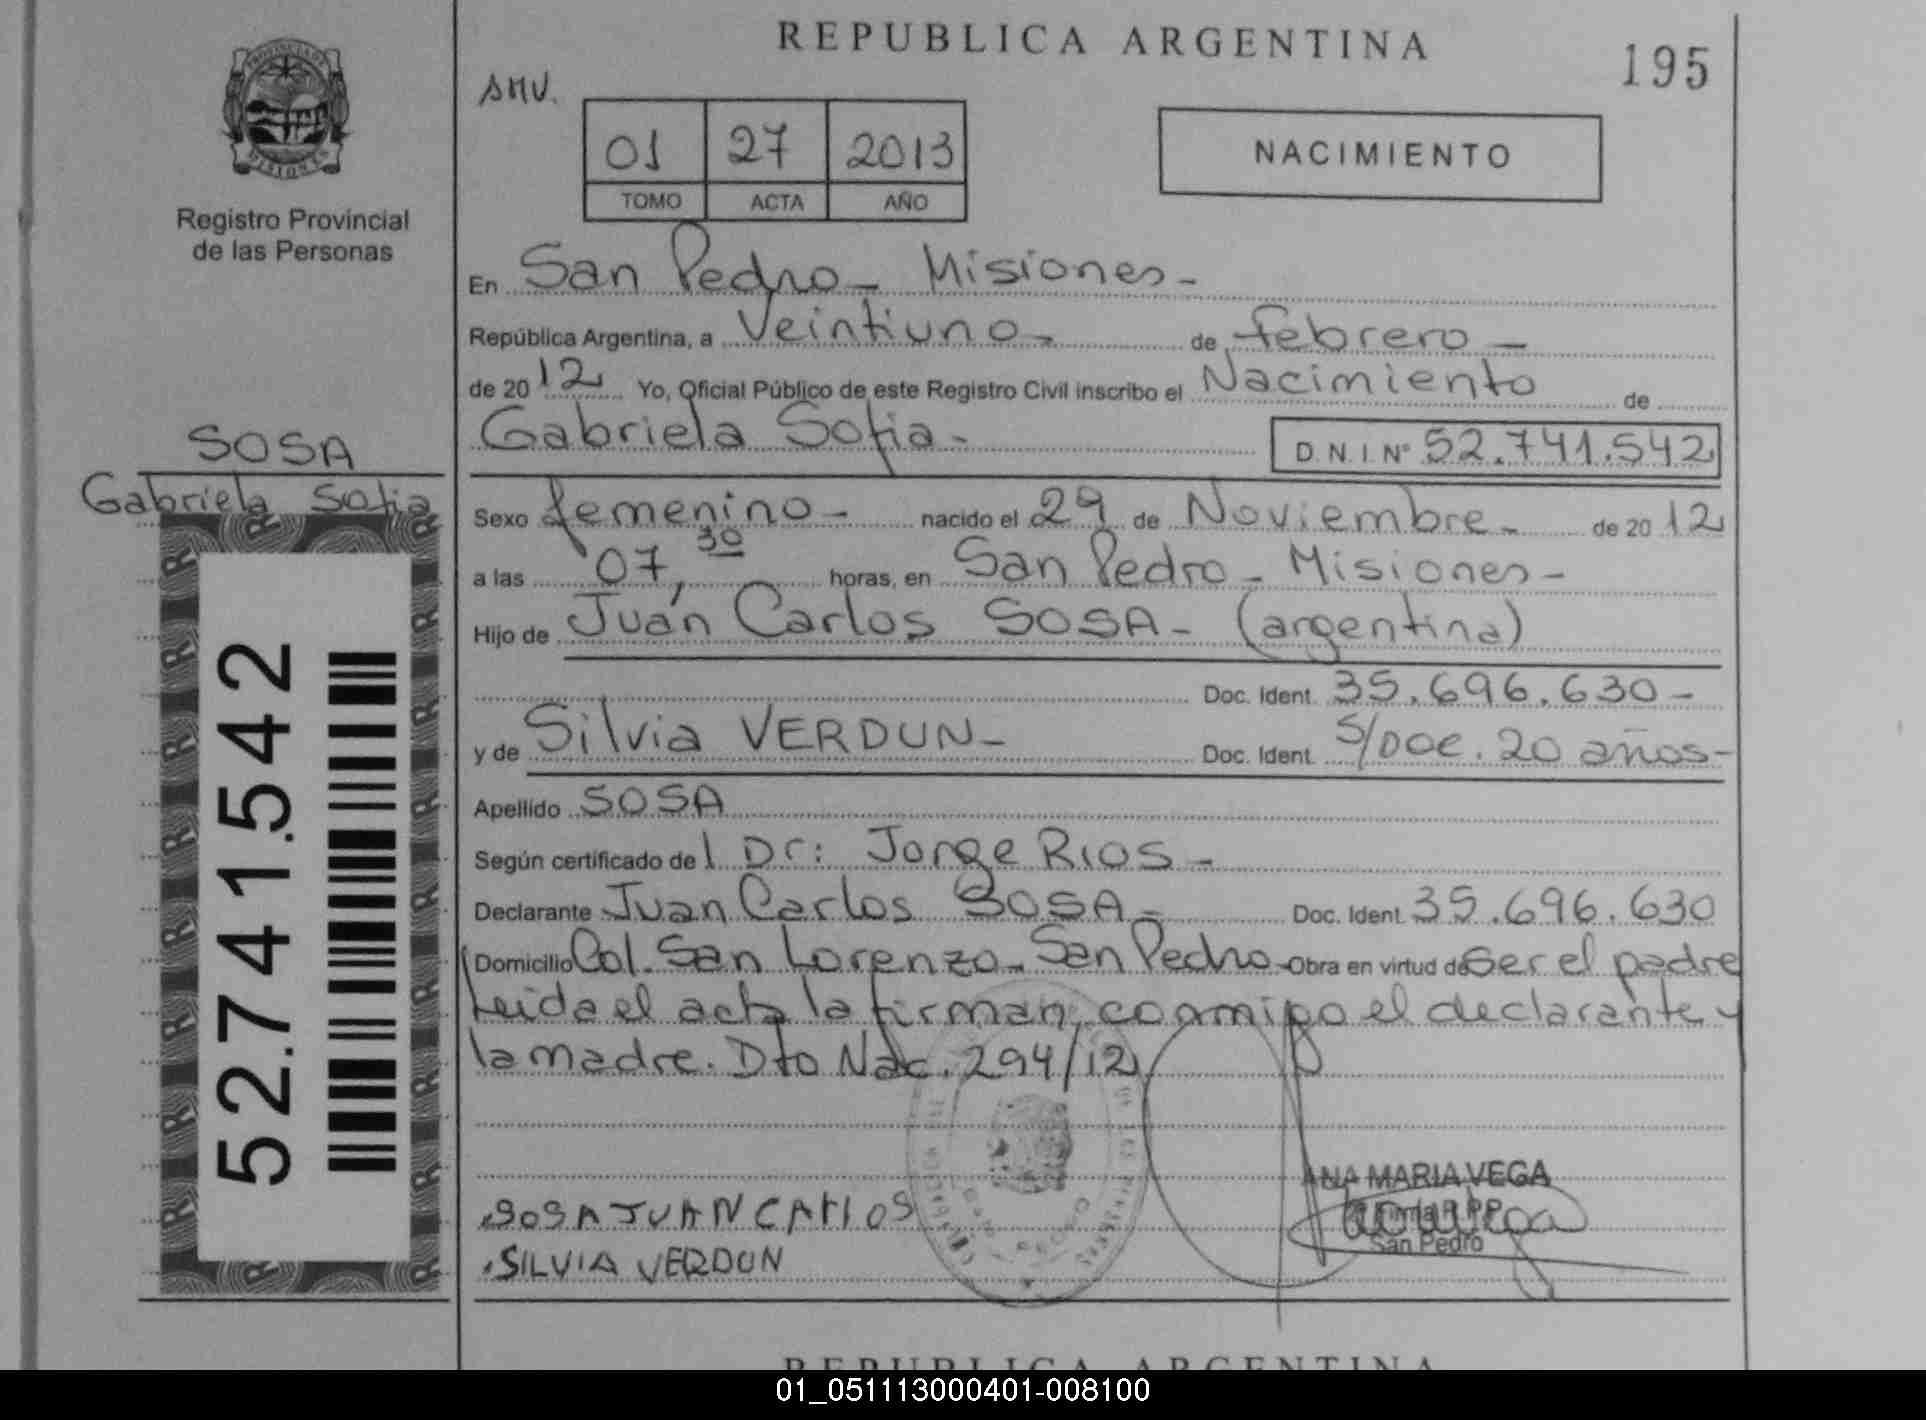 REPUBLICA ARGENTINA
195
SMV.
01 27 2013
TOMO ACTA AÑO
NACIMIENTO
Registro Provincial
de las Personas
En San Pedro - Misiones -
República Argentina, a Veintiuno - de febrero -
de 2012 Yo, Oficial Público de este Registro Civil inscribo el Nacimiento de
Gabriela Sofia - D.N.I. Nº 52.741.542
SOSA
Gabriela Sofia
52.741.542
Sexo femenino - nacido el 29 de Noviembre - de 2012
a las 07,30 horas, en San Pedro - Misiones -
Hijo de Juán Carlos SOSA - (argentina)
Doc. Ident. 35.696.630 -
y de Silvia VERDUN - Doc. Ident. S/Doc. 20 años -
Apellido SOSA
Según certificado del Dr: Jorge RIOS -
Declarante Juan Carlos SOSA - Doc. Ident. 35.696.630
Domicilio Col. San Lorenzo - San Pedro - Obra en virtud de Ser el padre
Leida el acta la firman, conmigo el declarante y
la madre. Dto Nac. 294/12
ANA MARIA VEGA
San Pedro
SOSA JUAN CARLOS
SILVIA VERDUN
REPUBLICA ARGENTINA
01_051113000401-008100